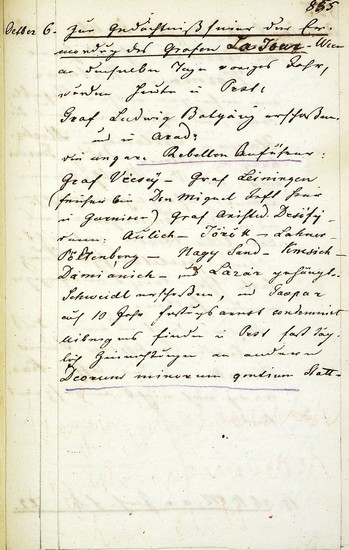 885
Octber 6. Zur Gedächtnißfeier der Er-
mordug des Grafen La Tour - Wien
an demselben Tage voriges Jahr,
wurden heute in Pest:
Graf Ludwig Batyány erschoßen.
und in Arad:
die ungar. Rebellen Anführer:
Graf Vécsey - Graf Leiningen
(früher bei Don Miguel
in Garnison) Graf Aristid Desöfy
Aulich - Török - Lahner
Pöltenberg - Nagy Sand - Knesich -
Damianich - und Lázár gehängt.
Schweidl erschoßen, und Gaspar
auf 10 Jahr festugsarrest condemnirt
übrigens finden in Pest fast täg-
lich Hinrichtungen an anderen
Deorum minorum gentium statt -